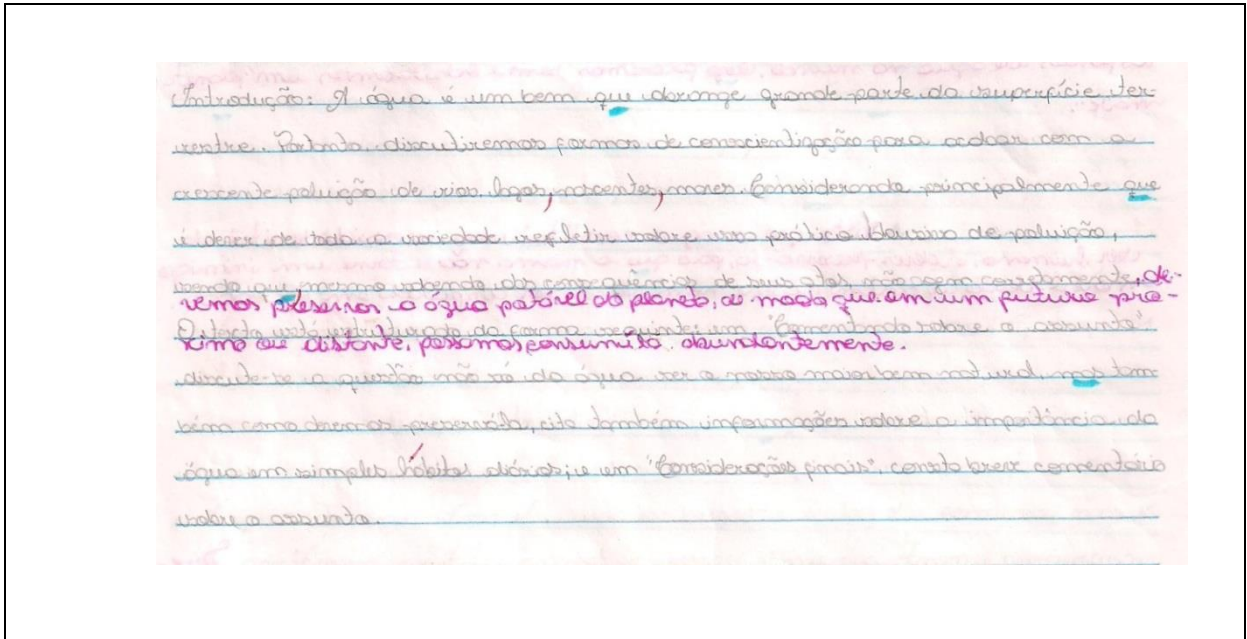 Introdução: A água é um bem que abrange grande parte da superfície ter-
restre. Portanto, discutiremos formas de conscientização para acabar com a
crescente poluição de rios, lagos, nascentes, mares. Considerando principalmente que
é dever de toda a sociedade refletir sobre essa prática abusiva de poluição,
sendo que mesmo sabendo das consequências de seus atos, não agem corretamente, de-
vemos preservar a água potável do planeta, de modo que em um futuro pró-
O texto está estruturado da forma seguinte: em "Comentando sobre o assunto"
ximo ou distante, possamos consumi-la abundantemente.
discute-se a questão não só da água ser o nosso maior bem natural, mas tam
bém como devemos preservá-la, cito também informações sobre a importância da
água em simples hábitos diários; e em "Considerações finais", consta breve comentário
sobre o assunto.